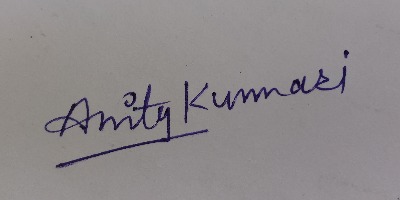 Amity Kummari